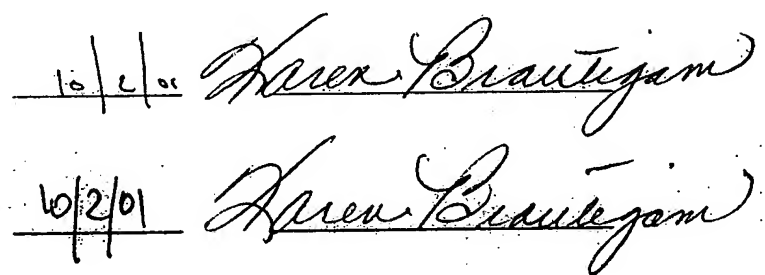 10/2/01 Karen Brautigam
10/2/01 Karen Brautigam